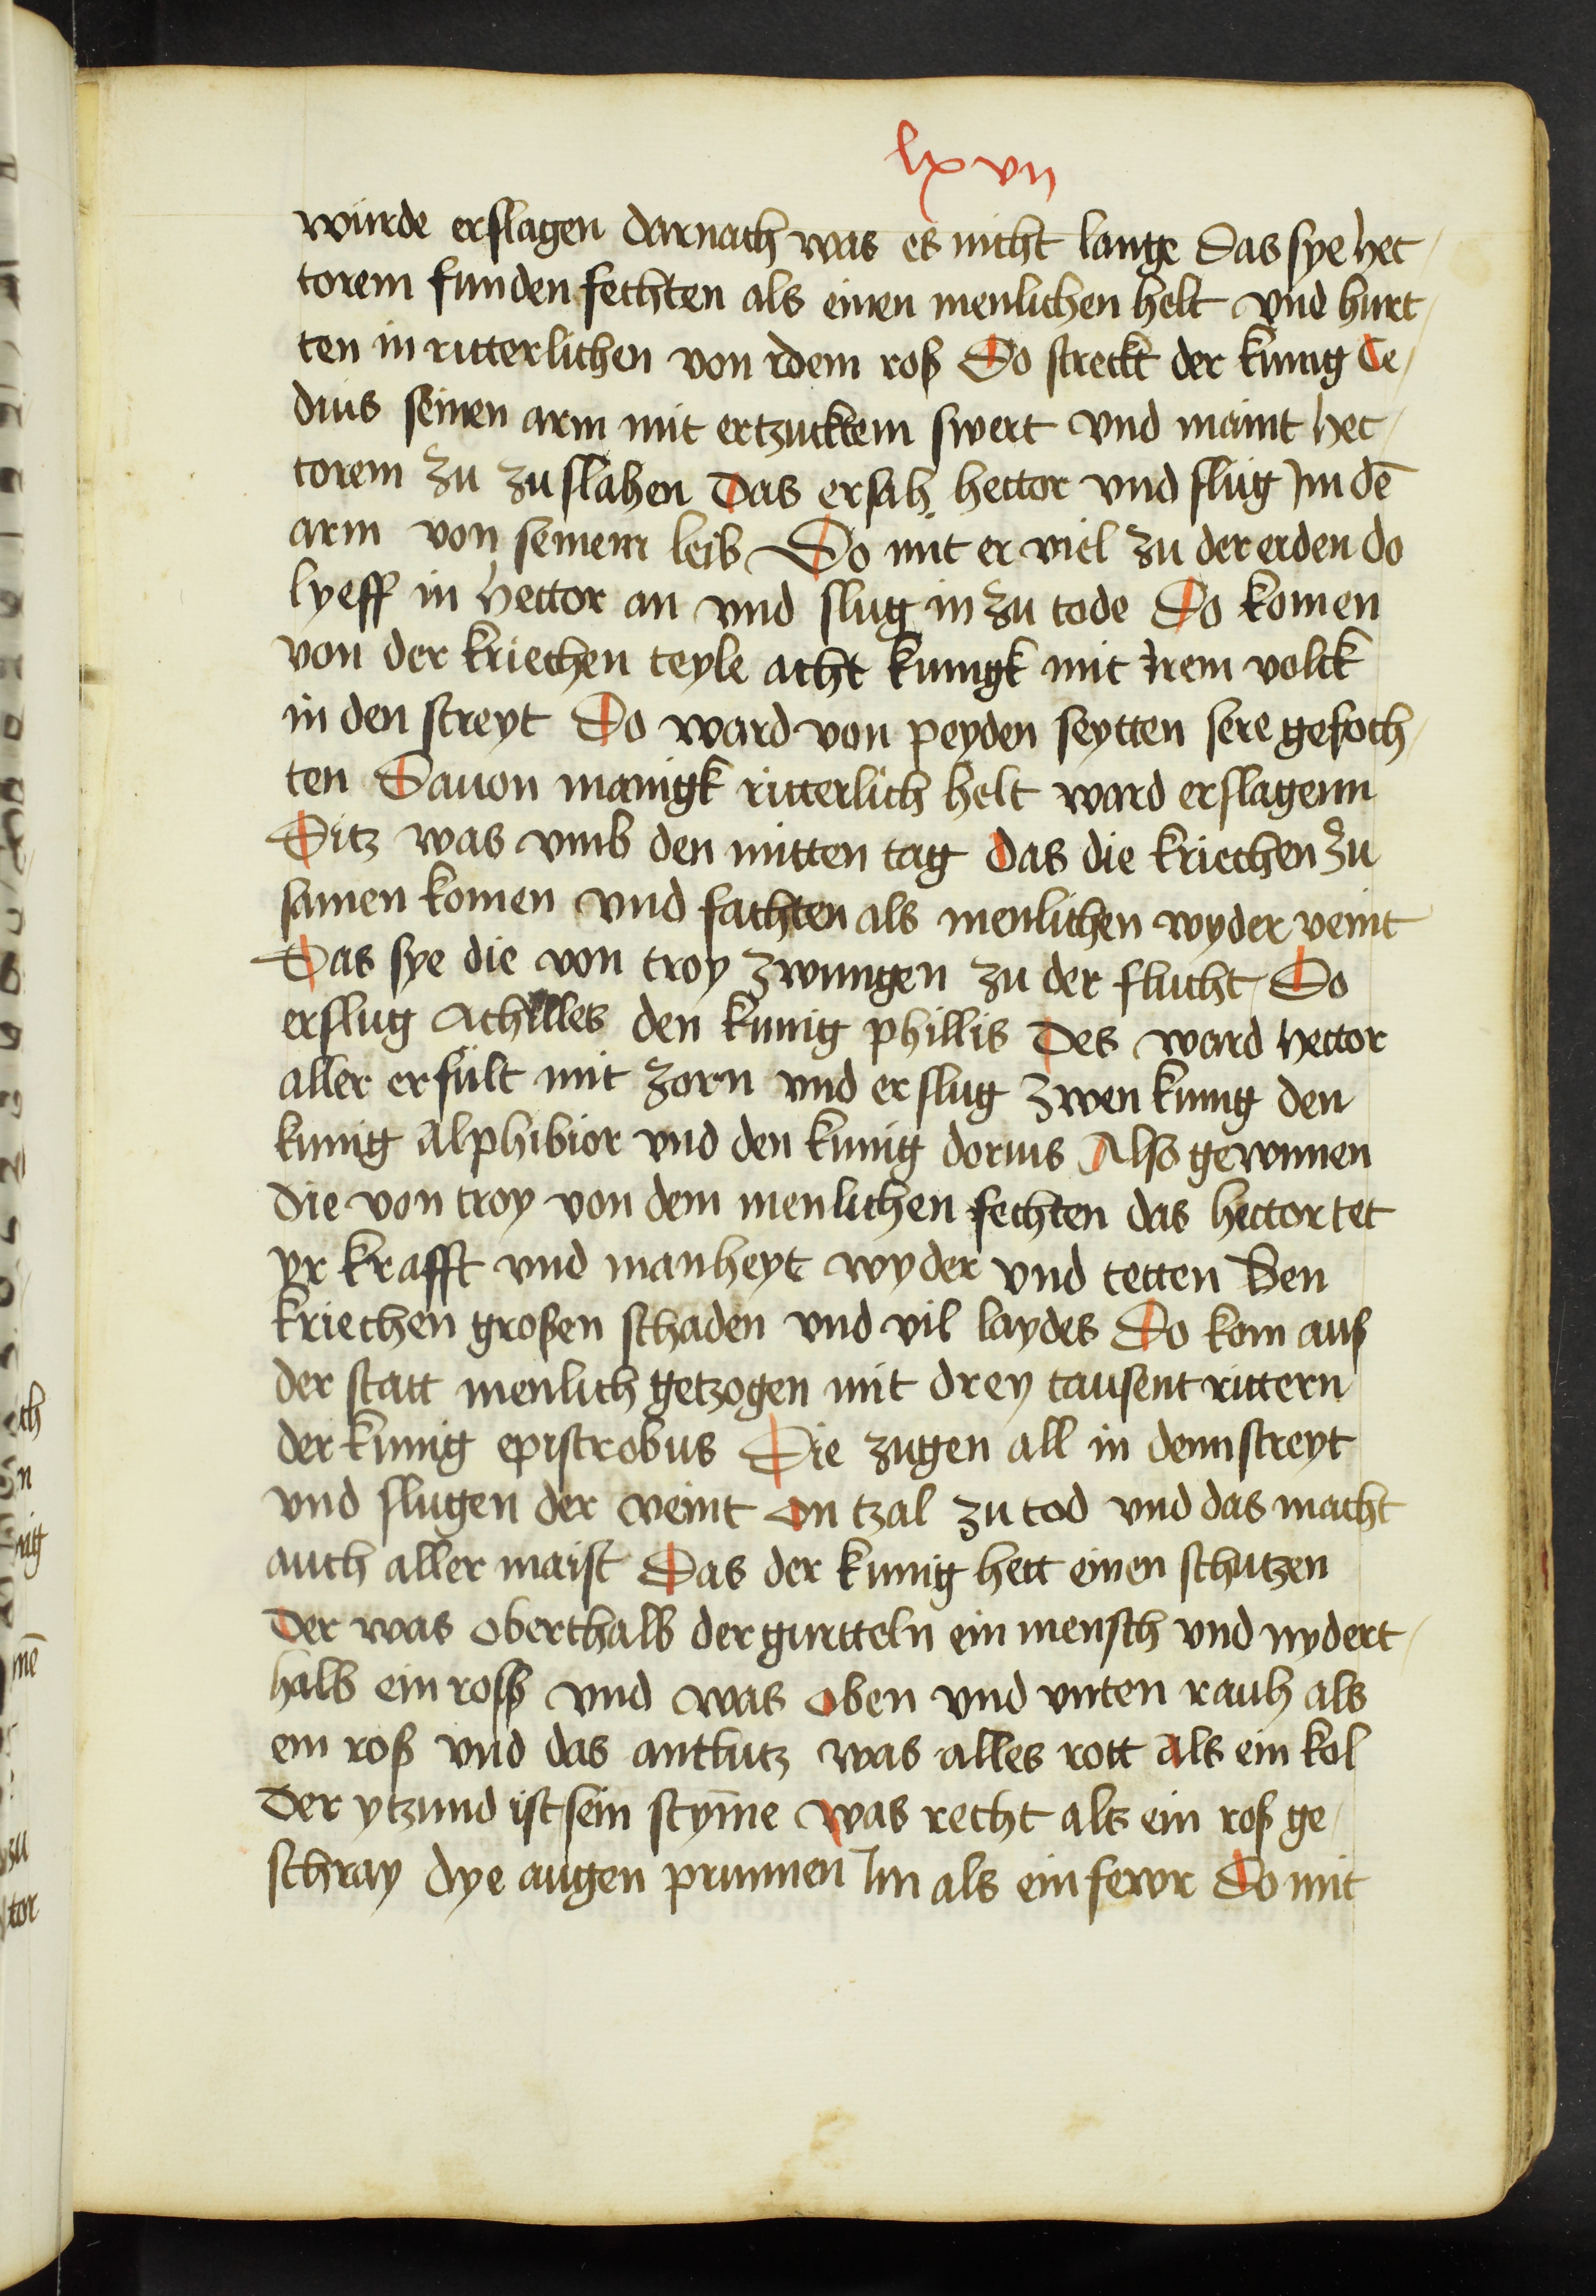 lxvii
wúrde erslagen darnach was es nicht lange Das sye hec
torem funden fechten als einen menlichen helt vnd hurt
ten in ritterlichen von dem roß Do streckt der kunig Ce
dius seinen arm mit ertzucktem swert vnd maint hec
torem zu zuslahen Das ersah hector vnd slúg Jm dē
arm von seinem leib Do mit er viel zu der erden do
lyeff in hector an vnd slug in zu tode Do komen
von der kriechen teyle acht kunigk mit Jrem volck
in den streyt Do ward von peyden seytten sere gefoch
ten Dauon manigk ritterlich helt ward erslagenn
Ditz was vmb den mitten tag Das die kriechen zu
samen komen vnd fachten als menlichen wyder veint
Das sye die von troy zwungen zu der flucht Do
erslug Achilles den kunig phillis Des ward hector
aller erfúlt mit zorn vnd erslug zwen kunig den
kunig Alphibior vnd den kunig dorius Also gewunnen
die von troy von dem menlichen fechten das hector tet
yr krafft vnd manheyt wyder vnd tetten Den
kriechen großen schaden vnd vil laydes Do kom auß
der statt menlich getzogen mit drey tausent rittern
der kunig epistrobus Die zugen all in denn streyt
vnd slugen der veint on tzal zu tod vnd das macht
auch aller maist Das der kunig hett einen schutzen
Der was oberthalb der gurtteln ein mensch vnd nydert
halb ein roß vnd was oben vnd vnten rauh als
ein roß vnd das antlutz was alles rott als ein kol
Der ytzund ist sein stym̄e was recht als ein roß ge
schray dye augen prunnen Jm als ein fewr Do mit